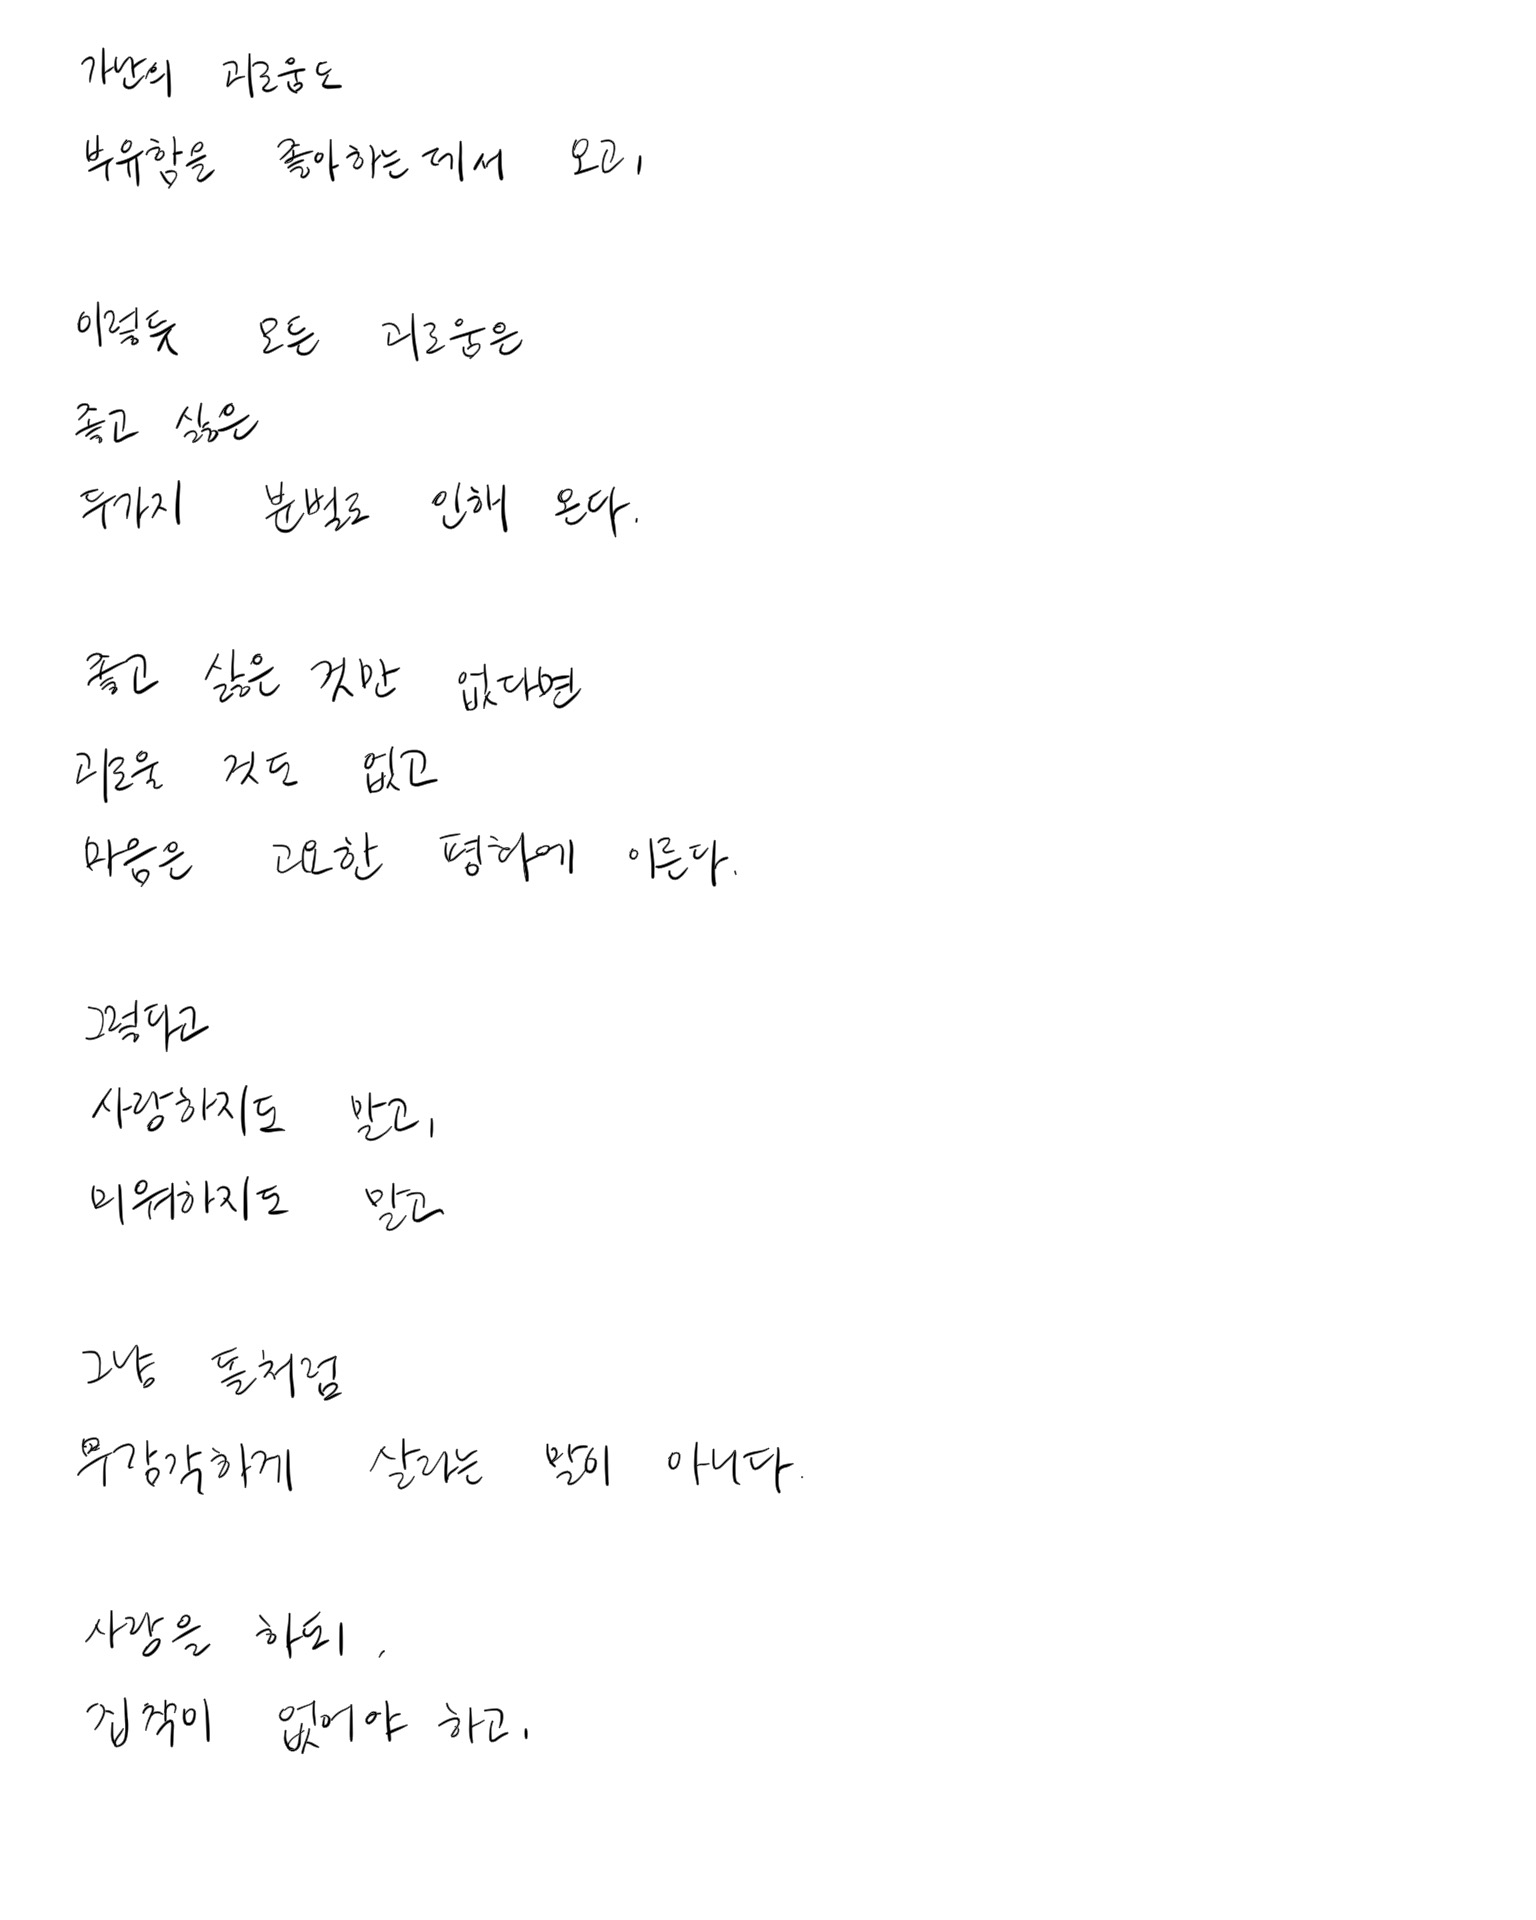 가난의 괴로움도
부유함을 좋아하는데서 오고,
이렇듯 모든 괴로움은
좋고 싫은
두가지 분별로 인해 온다.
좋고 싫은 것만 없다면
괴로울 것도 없고
마음은 고요한 평화에 이른다.
그렇다고
사랑하지도 말고,
미워하지도 말고
그냥 돌처럼
무감각하게 살라는 말이 아니다.
사랑을 하되,
집착이 없어야 하고,